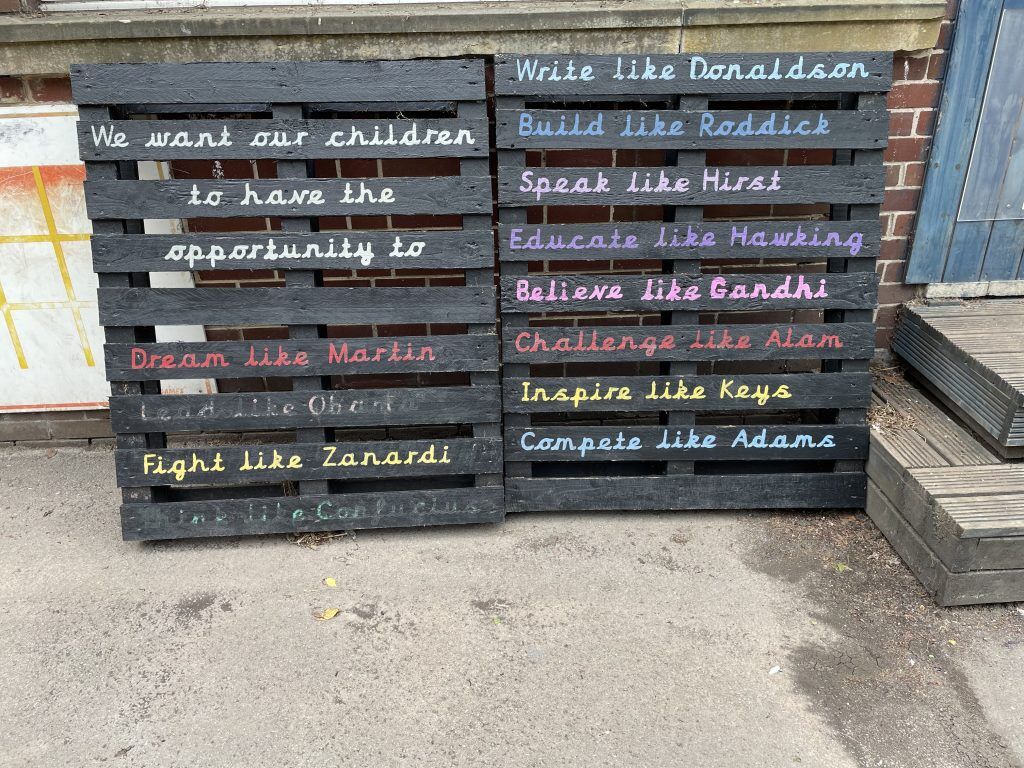 We want our children
to have the
opportunity to
Dream like Martin
Lead like Obama
Fight like Zanardi
Think like Confucius
Write like Donaldson
Build like Roddick
Speak like Hirst
Educate like Hawking
Believe like Gandhi
Challenge like Alam
Inspire like Keys
Compete like Adams